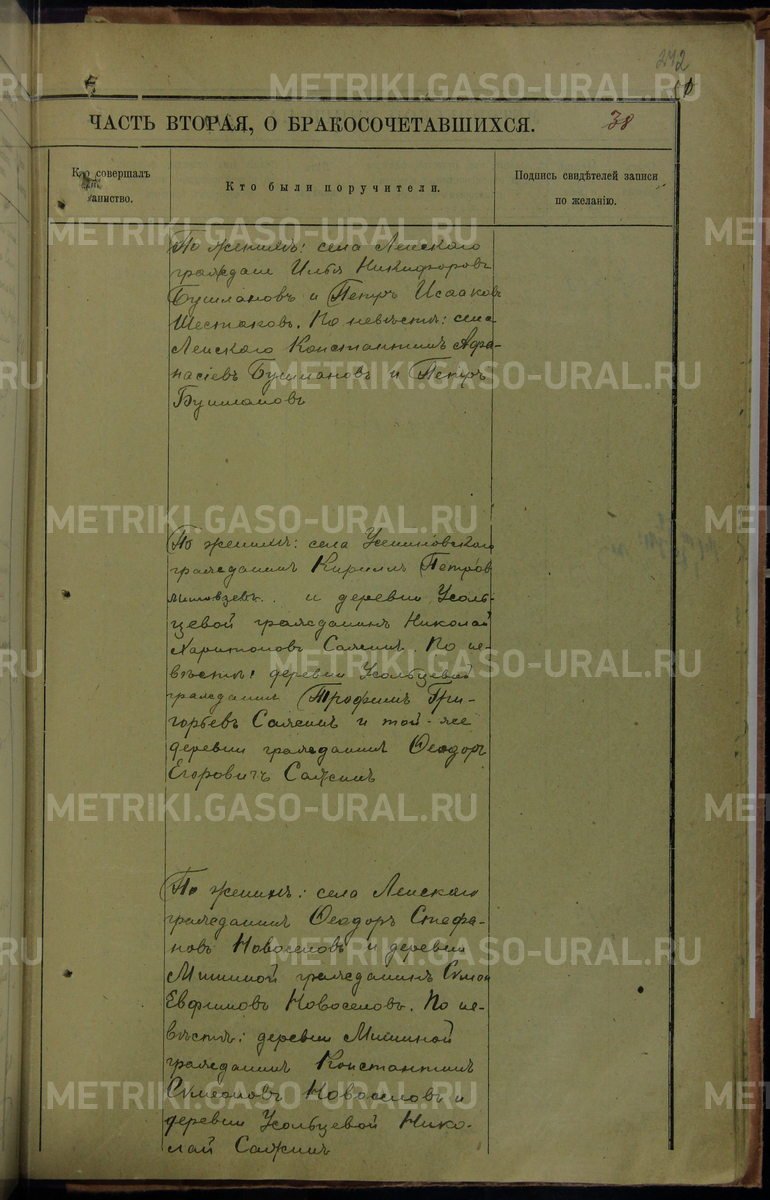 242
ЧАСТЬ ВТОРАЯ, О БРАКОСОЧЕТАВШИХСЯ.
38
Кто совершалъ
таинство.
Кто были поручители.
Подпись свидѣтелей записи
по желанію.
По женихѣ: села Ленскаго
граждане Илья Никифоровъ
Бушлановъ и Петръ Исааковъ
Шестаковъ. По невѣстѣ: села
Ленскаго Константинъ Афа-
насіевъ Бушлановъ и Петръ
Бушлановъ
По женихѣ: села Усениновскаго
гражданинъ Кириллъ Петровъ
и деревни Усоль-
цевой гражданинъ Николай
Харитоновъ Сажинъ. По не-
вѣстѣ: деревни Усольцевой
гражданин Трофимъ Гри-
горьевъ Сажинъ и той-же
деревни гражданинъ Ѳеодоръ
Егоровичъ Сажинъ
По женихѣ: села Ленскаго
гражданинъ Ѳеодоръ Стефа-
новъ Новоселовъ и деревни
Мишиной гражданинъ
Евфимовъ Новоселовъ. По не-
вѣстѣ: деревни Мишиной
гражданинъ Константинъ
Симеоновъ Новоселовъ и
деревни Усольцевой Нико-
лай Сажинъ
METRIKI.GASO-URAL.RU